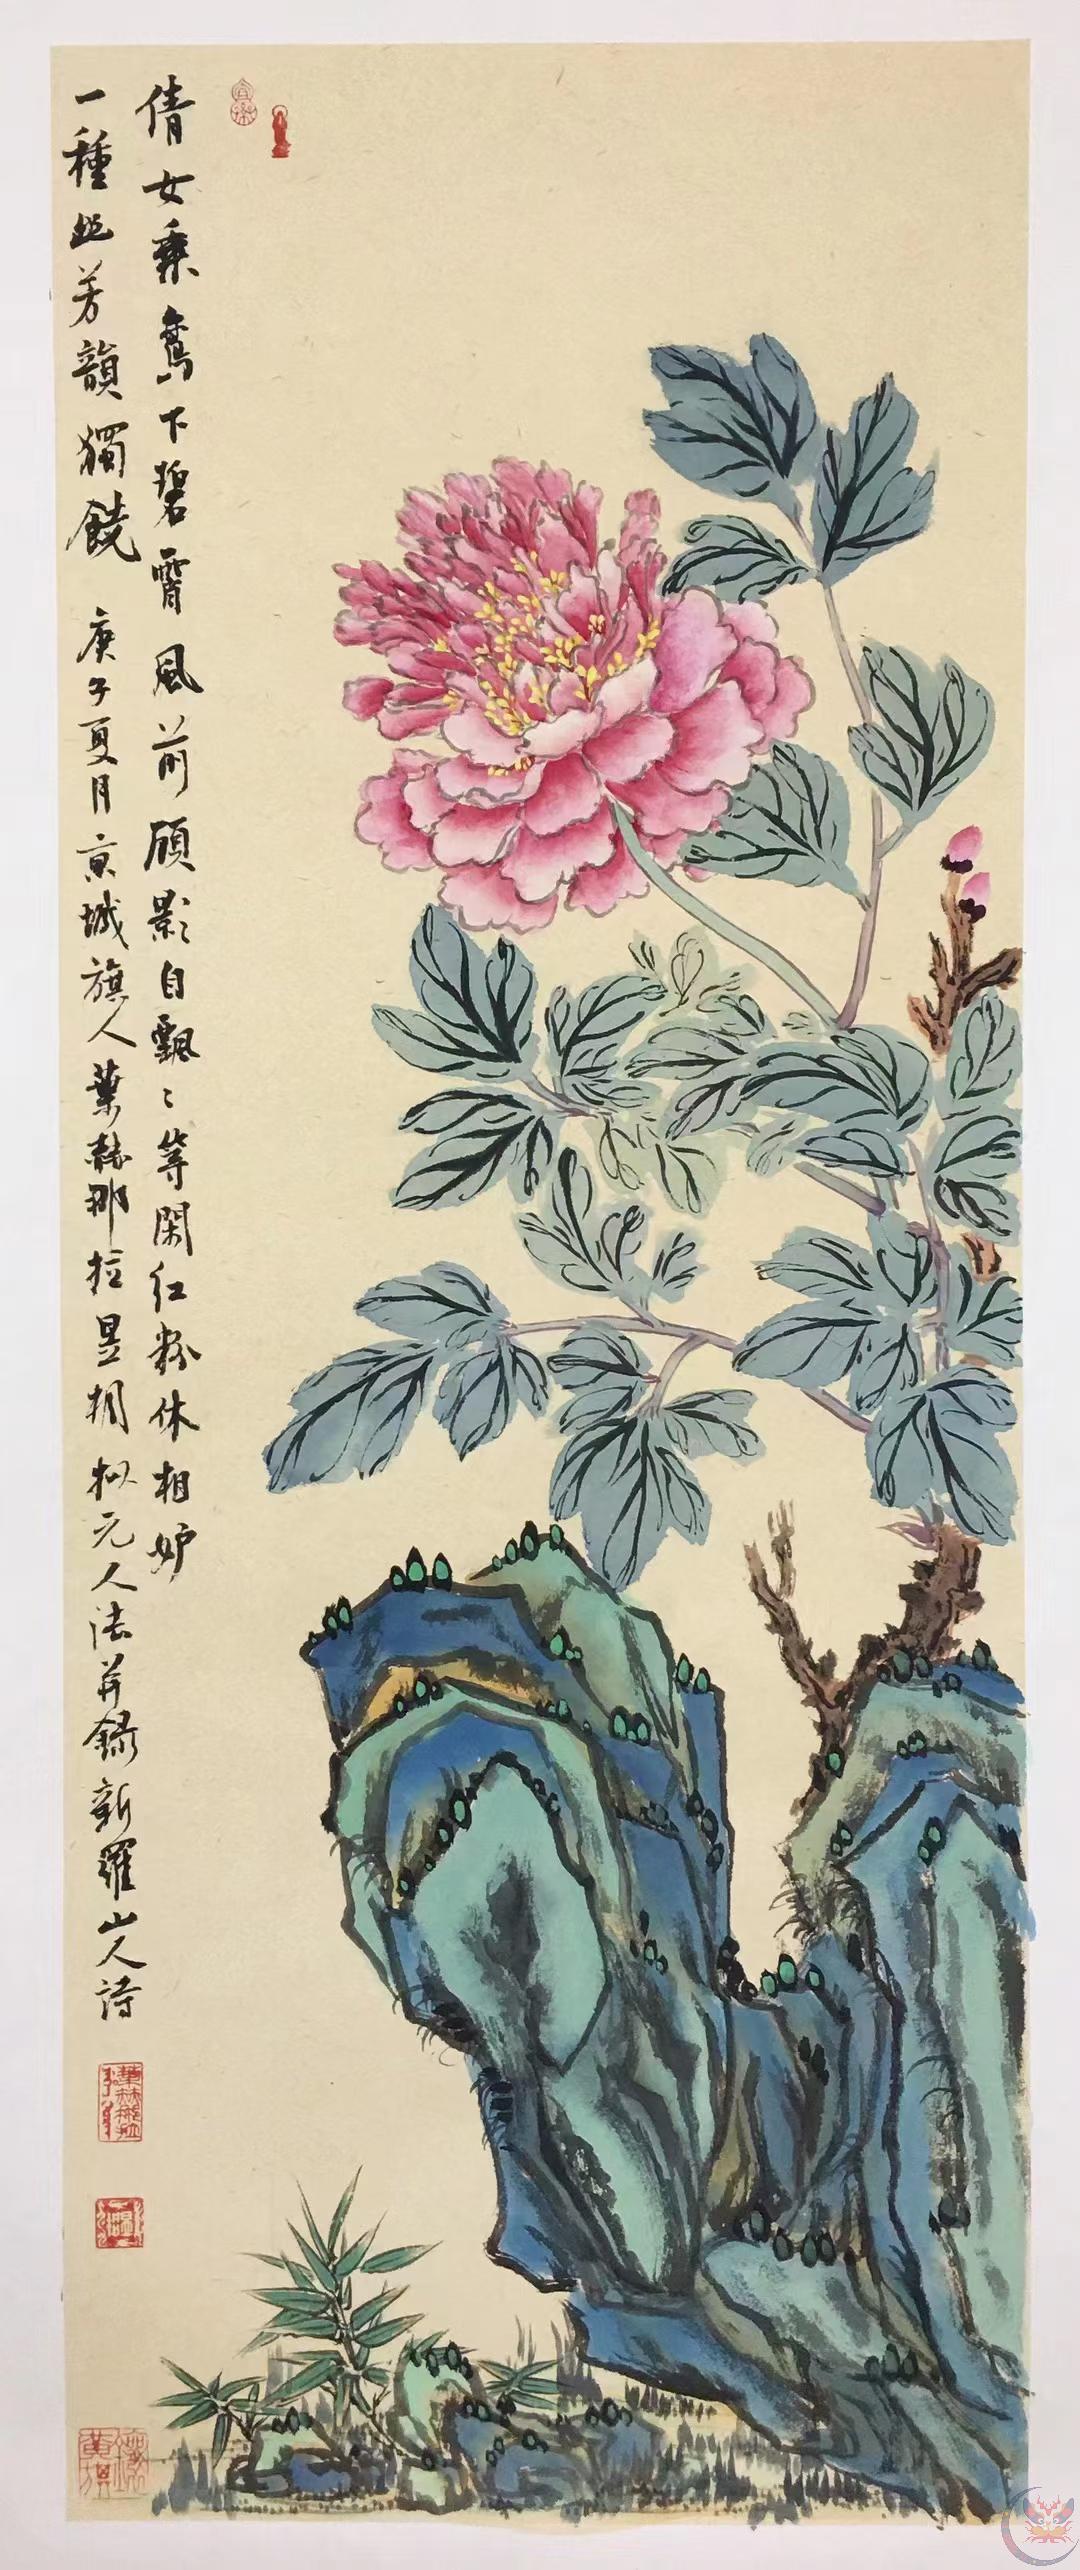 倩女乘鸞下碧霄風前顧影自飄〻等閑紅粉休相妒
一種此芳韻獨饒 庚子夏月京城旗人葉赫那拉昱㭎拟元人法并錄新羅山人詩